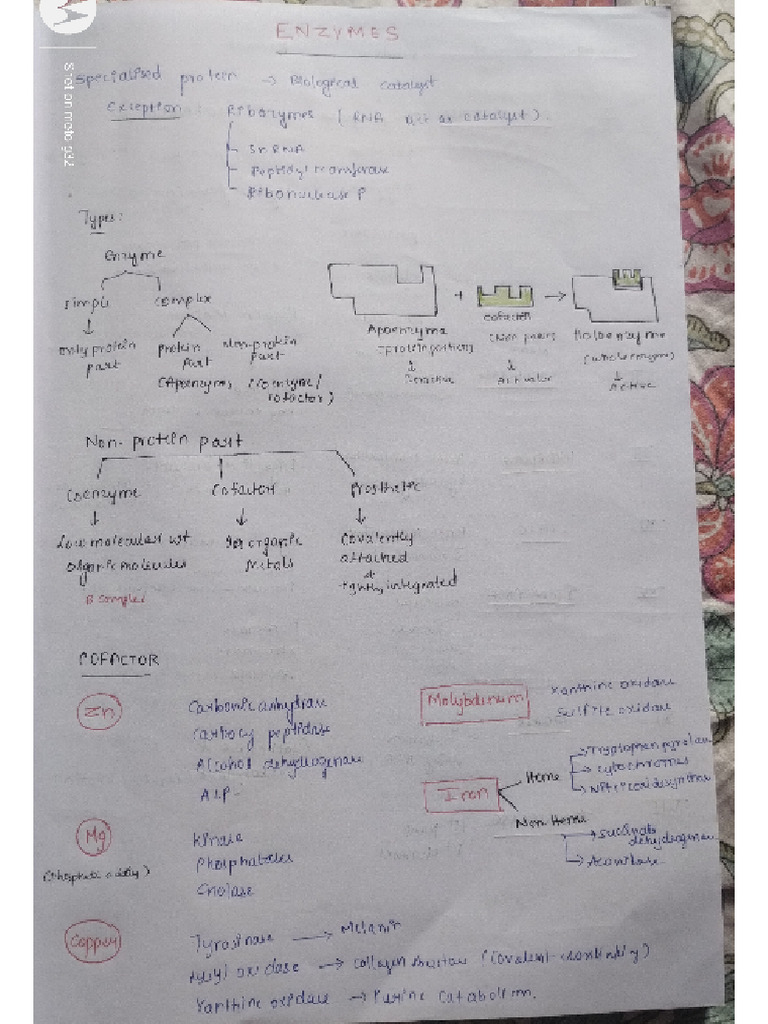 Shot on moto g32
ENZYMES
Specialised protein → Biological catalyst
Exception : Ribozymes (RNA act as catalyst).
SnRNA
Peptidyl transferase
Ribonuclease P
Types:
Enzyme
Simple complex
only protein part
protein part (Apoenzyme)
Non-protein part (coenzyme/ cofactor)
+ →
Apoenzyme
(Protein portion)
↓
Inactive
cofactor
(Non protein)
↓
Activator
Holoenzyme
(whole enzyme)
↓
Active
Non-protein part
Coenzyme Cofactor Prosthetic
↓ ↓ ↓
Low molecular wt
organic molecules
B complex
Inorganic
Metals
Covalently
attached
or
tightly integrated
COFACTOR
Zn
Carbonic anhydrase
Carboxy peptidase
Alcohol dehydrogenase
ALP
Mg
Kinase
Phosphatase
Copper
Tyrosinase → Melanin
Lysyl oxidase → Collagen
Xanthine oxidase → Purine Catabolism.
Molybdenum
Xanthine oxidase
Sulfite oxidase
Iron
Heme
→ Tryptophan pyrolase
→ cytochromes
Non Heme
→ Succinate dehydrogenase
→ Aconitase